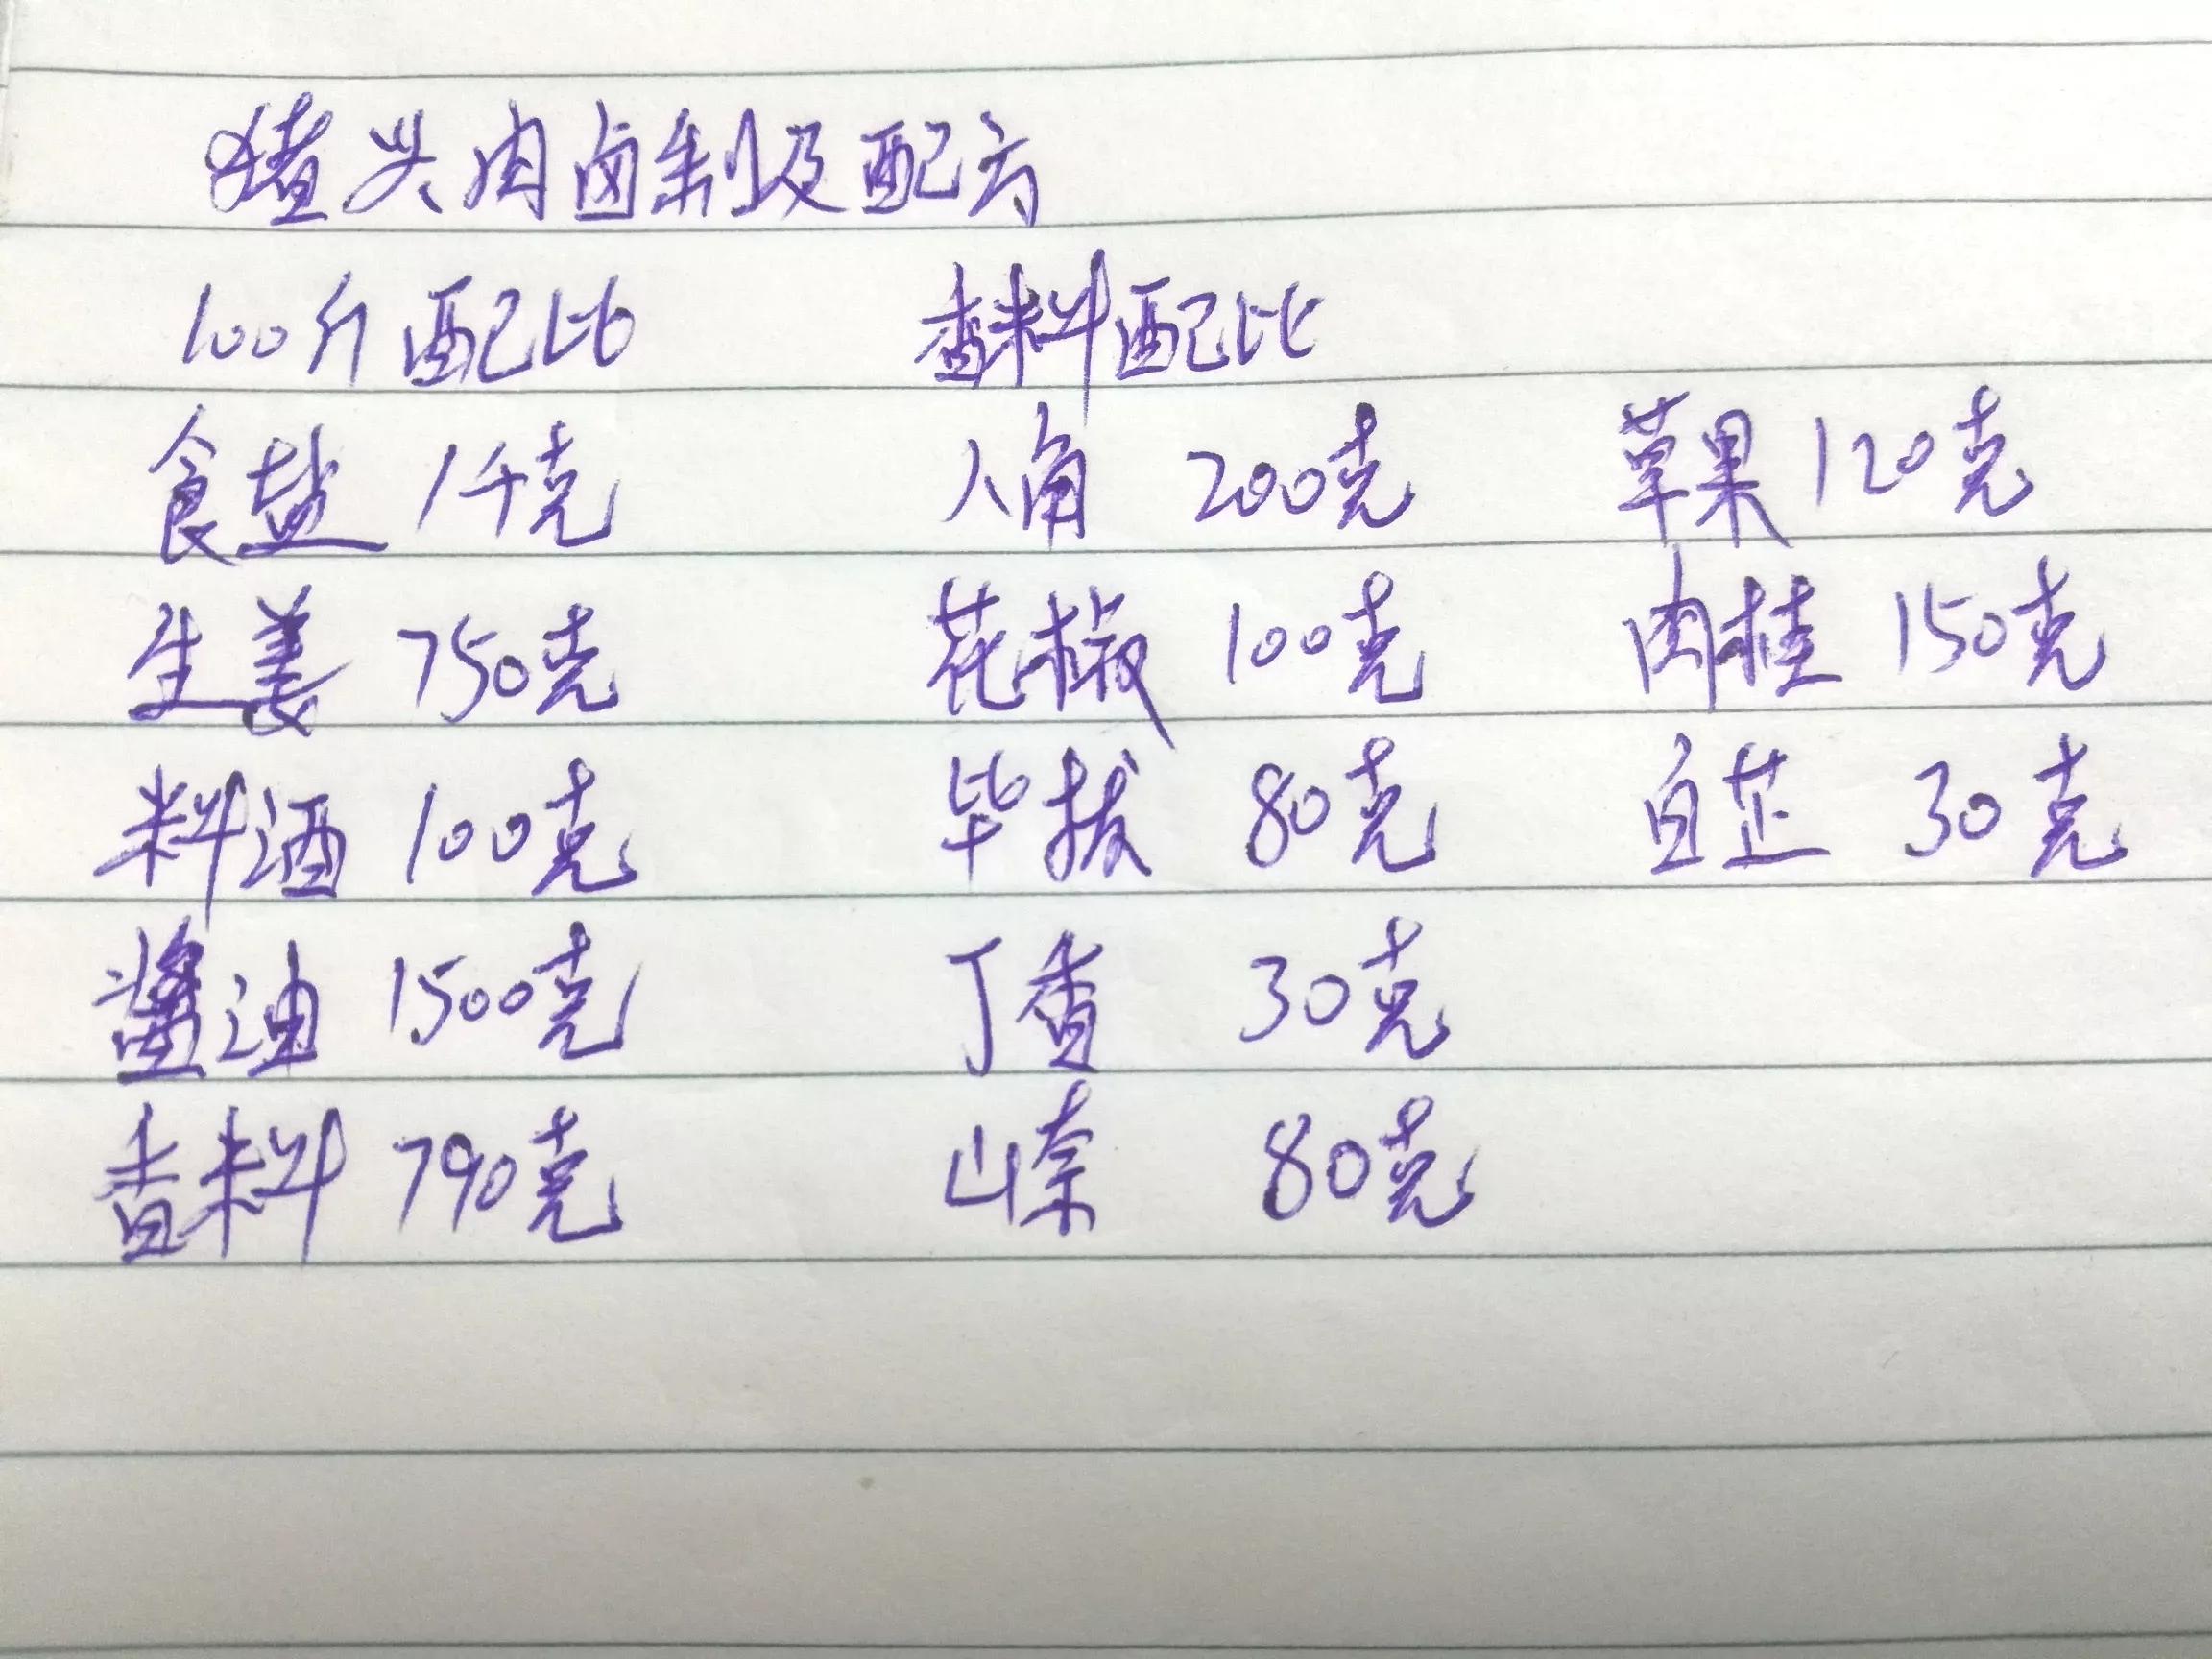 猪头肉卤制及配方
100斤配比 香料配比
食盐 1千克 八角 200克 草果 120克
生姜 750克 花椒 100克 肉桂 150克
料酒 100克 毕拔 80克 白芷 30克
酱油 1500克 丁香 30克
香料 790克 山奈 80克